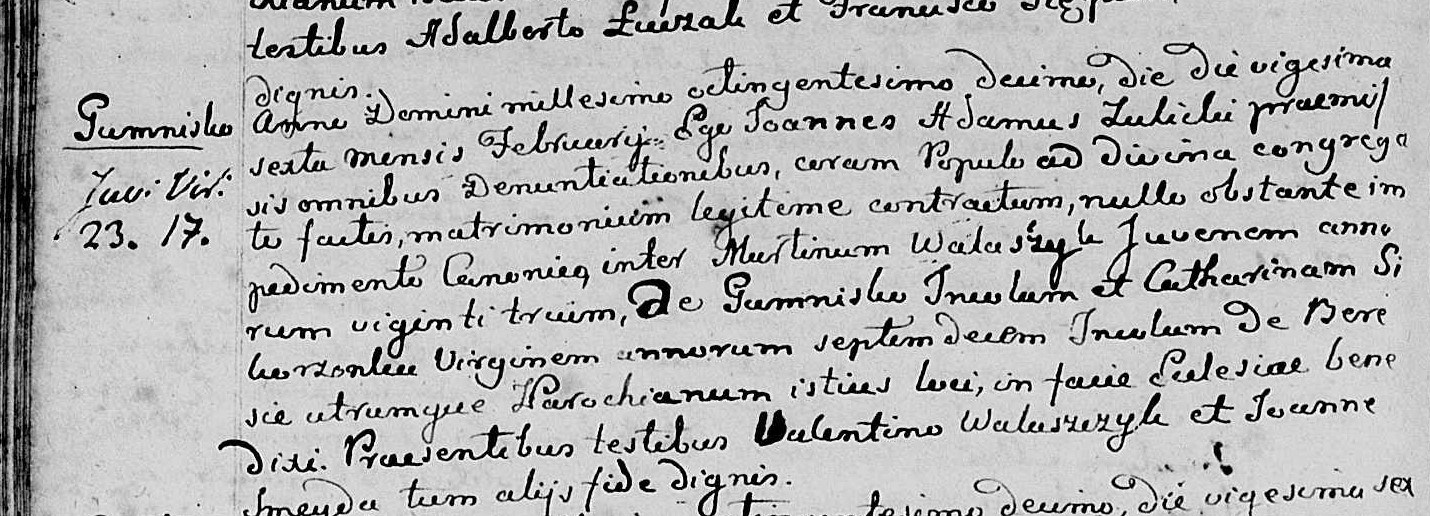 testibus Adalberto et
dignis.
Gumnisko
Juv: Vir:
23. 17.
Anno Domini millesimo octingentesimo decimo, die die vigesima
sexta mensis Februarij. Ego Joannes Adamus Zulicki praemis
sis omnibus Denuntiationibus, coram Populo ad divina congrega
to factis, matrimonium legitime contractum, nullo obstante im
pedimento Canonico, inter Martinum Walaszczyk Juvenem anno
rum viginti trium, De Gumnisko Incolam et Catharinam Si
korzonka Virginem annorum septemdecem Incolam De Bere
sie utrumque Parochianum istius loci, in facie Eclesiae bene
dixi. Praesentibus testibus Valentino Walaszczyk et Joanne
Smeyda tum alijs fide dignis.
decimo, die vigesima sex